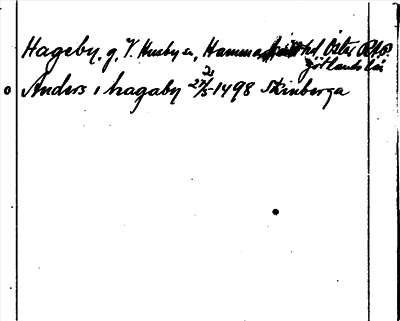 Hageby, g, V. Husby sn, Hammarkinds hd, Öster
götlands län
Anders i hagaby 27/5 1498 Skinberga